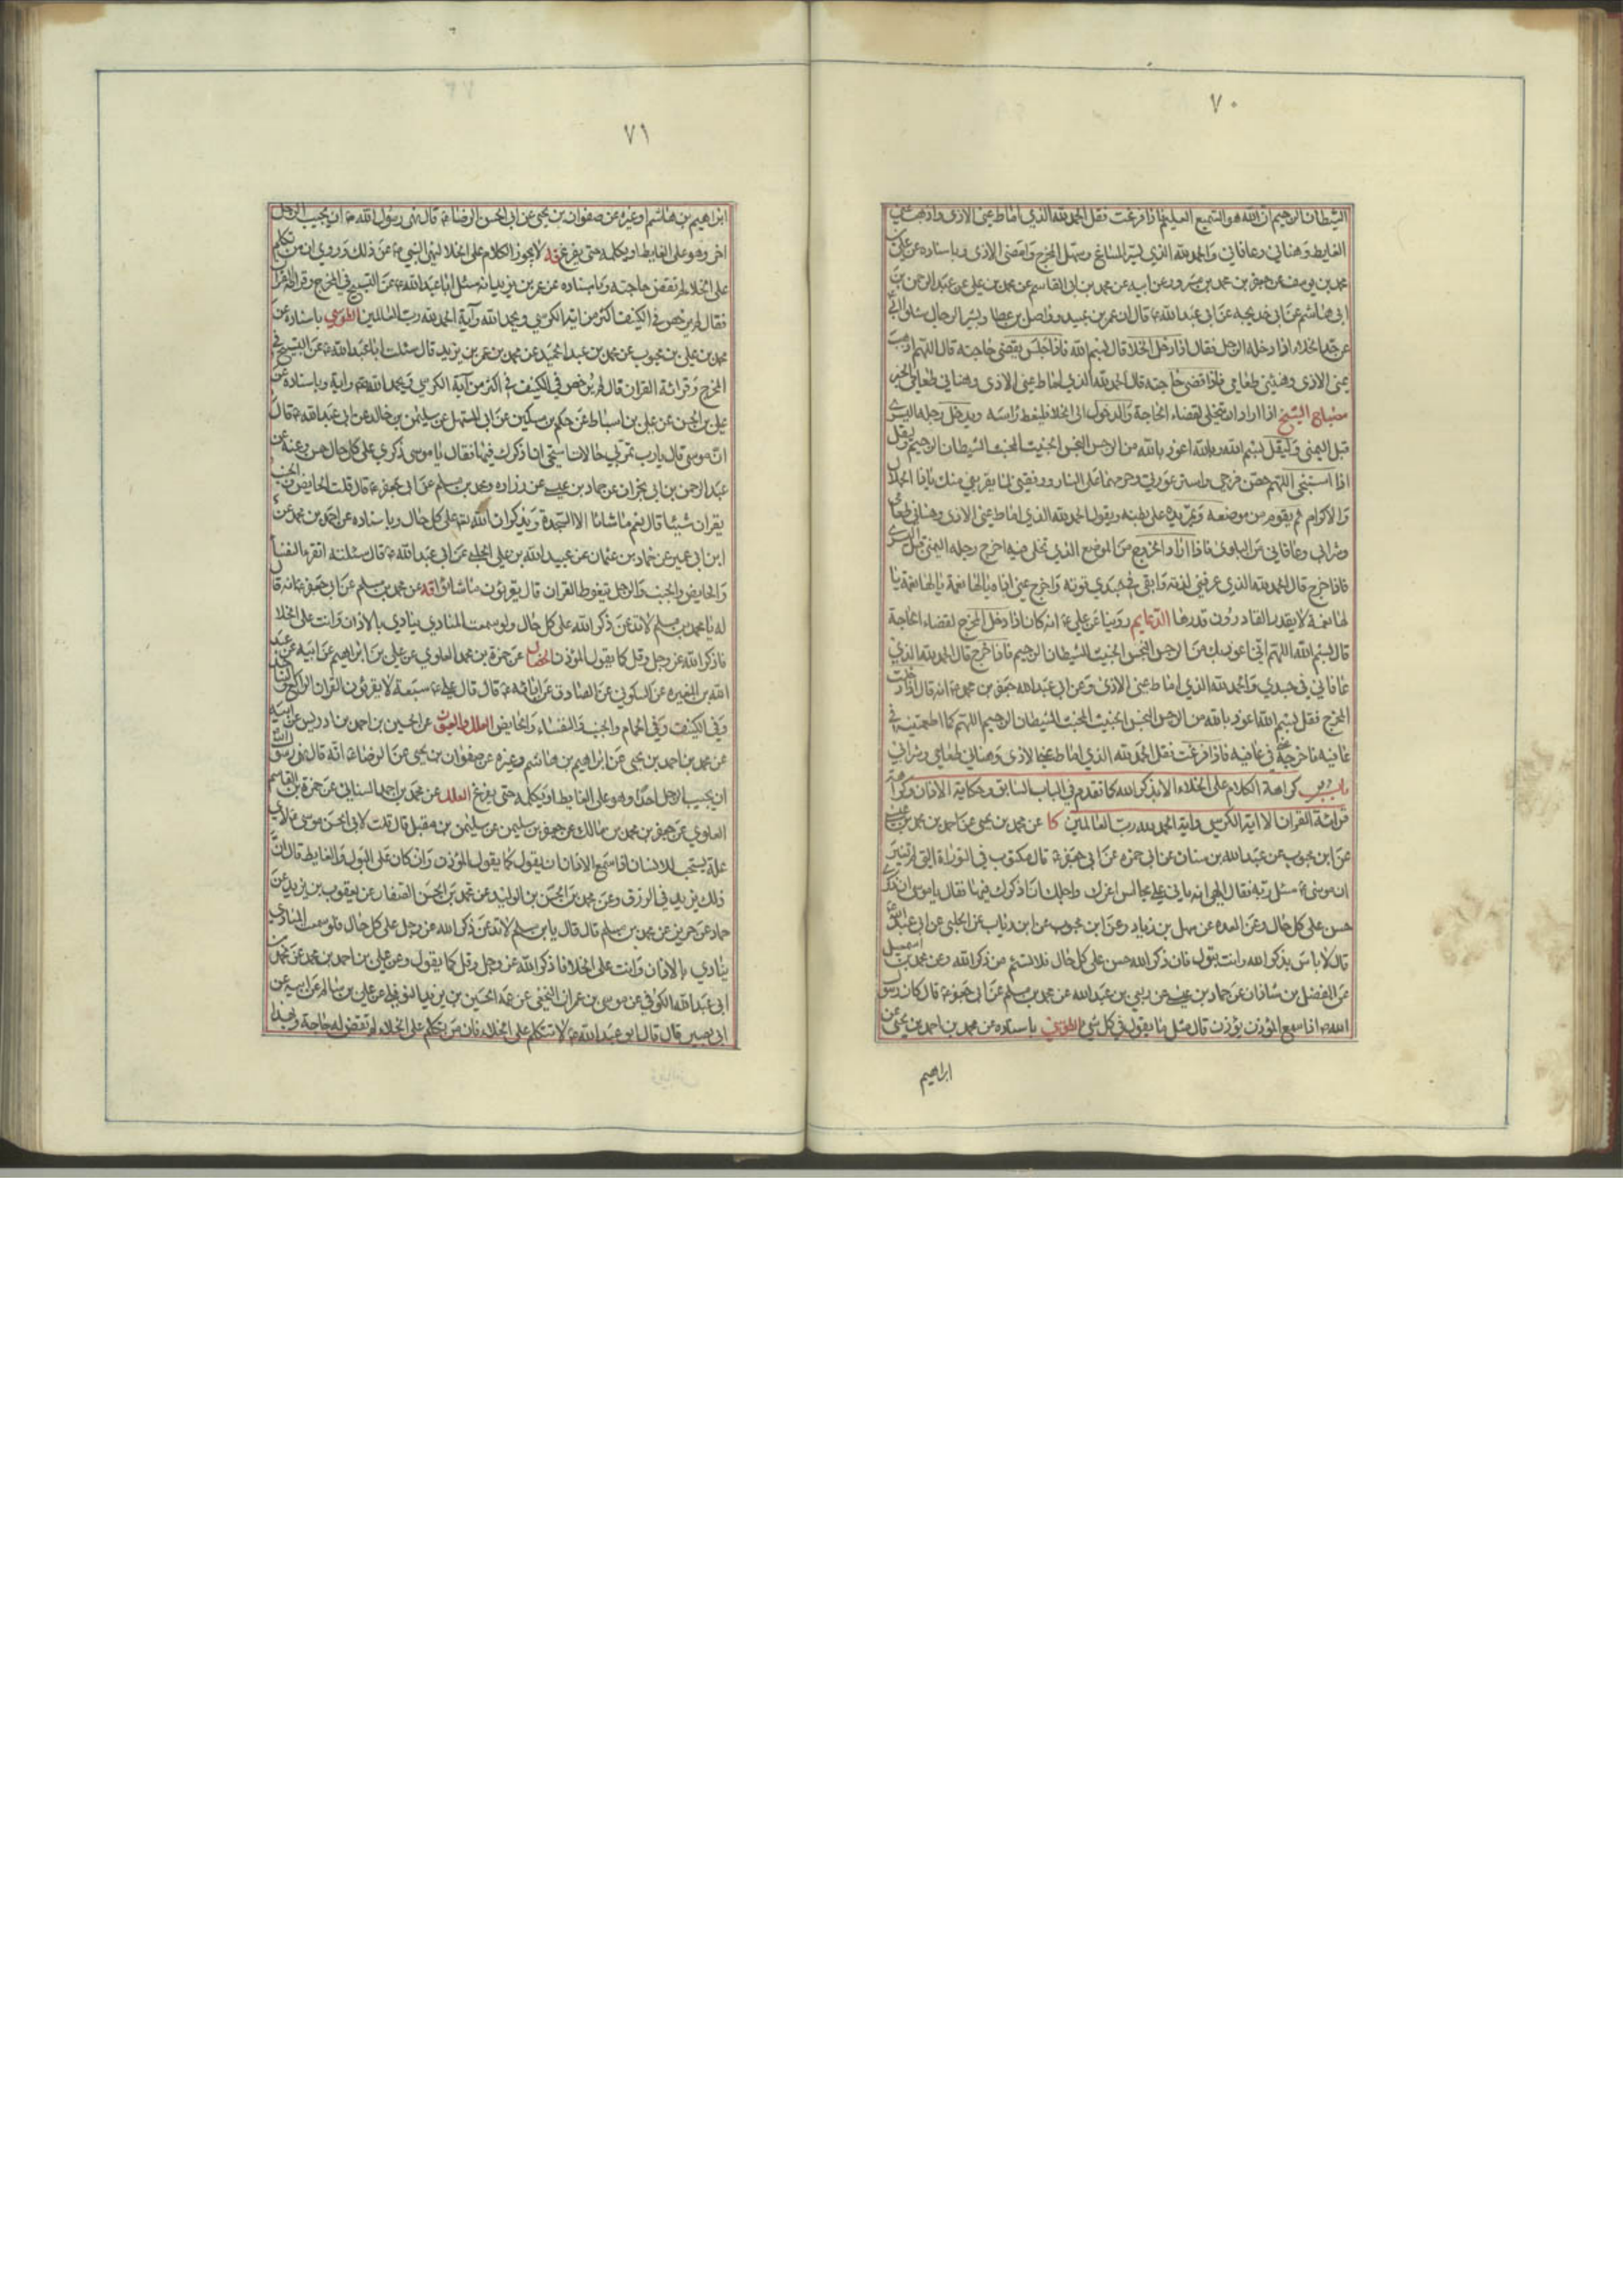 ٧٠
الشيطان الرجيم ان الله هو السميع العليم فاذا فرغت فقل الحمد لله الذي اماط عني الاذى واذهب عني
الغايط وهناني وعافاني والحمد لله الذي يسر المساغ وسهل المخرج وامضى الاذى وباسناده عن علي بن
محمد بن يوسف عن جعفر بن محمد بن مسرور عن ابيه عن محمد بن ابي القاسم عن محمد بن علي عن عبد الرحمن بن
ابي هاشم عن ابي خديجة عن ابي عبد الله ع قال ان عمرو بن عبيد وواصل بن عطا وبشير الرحال سئلوا ابي
عن حد الخلاء اذا دخله الرجل فقال اذا دخل الخلا قال بسم الله فاذا جلس يقضي حاجته قال اللهم اذهب
عني الاذى وهنئني طعامي فاذا قضى حاجته قال الحمد لله الذي اماط عني الاذى وهناني طعامي الخبر
مصباح الشيخ اذا اراد ان يتخلى لقضاء الحاجة والدخول الى الخلا فليغط راسه ويدخل رجله اليسرى
قبل اليمنى وليقل بسم الله وبالله اعوذ بالله من الرجس النجس الخبيث المخبث الشيطان الرجيم وليقل
اذا استنجى اللهم حصن فرجي واستر عورتي وحرمهما على النار ووفقني لما يقربني منك ياذا الجلال
والاكرام ثم يقوم من موضعه ويمر يده على بطنه ويقول الحمد لله الذي اماط عني الاذى وهناني طعامي
وشرابي وعافاني من البلوى فاذا اراد الخروج من الموضع الذي تخلى فيه اخرج رجله اليمنى قبل اليسرى
فاذا خرج قال الحمد لله الذي عرفني لذته وابقى في جسدي قوته واخرج عني اذاه يا لها نعمة يا لها نعمة يا
لها نعمة لا يقدر القادرون قدرها الدعايم روينا عن علي ع انه كان اذا دخل المخرج لقضاء الحاجة
قال بسم الله اللهم اني اعوذ بك من الرجس النجس الخبيث الشيطان الرجيم فاذا خرج قال الحمد لله الذي
عافاني في جسدي والحمد لله الذي اماط عني الاذى وعن ابي عبد الله جعفر بن محمد ع انه قال اذا دخلت
المخرج فقل بسم الله اعوذ بالله من الرجس النجس الخبيث المخبث الشيطان الرجيم اللهم كما اطعمتنيه في
عافيه فاخرجه في عافيه فاذا فرغت فقل الحمد لله الذي اماط عني الاذى وهناني طعامي وشرابي
باب كراهة الكلام على الخلاء الا بذكر الله كما تقدم في الباب السابق وحكاية الاذان وكراهة
قرائة القران الا اية الكرسي واية الحمد لله رب العالمين كا عن محمد بن يحيى عن احمد بن محمد بن عيسى
عن ابن محبوب عن عبد الله بن سنان عن ابي حمزه عن ابي جعفر ع قال مكتوب في التوراة التي لم تغير
ان موسى ع سئل ربه فقال الهي انه ياتي علي مجالس اعزك واجلك ان اذكرك فيها فقال يا موسى ان ذكري
حسن على كل حال وعن العده عن سهل بن زياد وعن ابن محبوب عن ابن رئاب عن الحلبي عن ابي عبد الله ع
قال لا باس بذكر الله وانت تبول فان ذكر الله حسن على كل حال فلا تسئم من ذكر الله وعن محمد بن اسمعيل
عن الفضل بن شاذان عن حماد بن عيسى عن ربعي بن عبد الله عن محمد بن مسلم عن ابي جعفر ع قال كان رسول
الله ص اذا سمع المؤذن يؤذن قال مثل ما يقول في كل شيء الطوسي باسناده عن محمد بن احمد بن يحيى عن
ابراهيم
٧١
ابراهيم بن هاشم او غيره عن صفوان بن يحيى عن ابي الحسن الرضا ع قال نهى رسول الله ص ان يجيب الرجل
اخر وهو على الغايط او يكلمه حتى يفرغ قه لا يجوز الكلام على الخلا لنهي النبي ص عن ذلك وروي ان من تكلم
على الخلا لم تقض حاجته وباسناده عن عمر بن يزيد انه سئل ابا عبد الله ع عن التسبيح في المخرج وقرائة القران
فقال لم يرخص في الكنيف اكثر من اية الكرسي ويحمد الله واية الحمد لله رب العالمين الطوسي باسناده عن
محمد بن علي بن محبوب عن محمد بن عبد الحميد عن محمد بن عمر بن يزيد قال سئلت ابا عبد الله ع عن التسبيح في
المخرج وقرائة القران قال لم يرخص في الكنيف في اكثر من آية الكرسي ويحمد الله واية وباسناده عن
علي بن الحسن عن علي بن اسباط عن حكم بن مسكين عن ابي المستهل عن سليمن بن خالد عن ابي عبد الله ع قال
ان موسى قال يا رب تمر بي حالات استحي ان اذكرك فيها فقال يا موسى ذكري على كل حال حسن وعنه عن
عبد الرحمن بن ابي نجران عن حماد بن عيسى عن زراره ومحمد بن مسلم عن ابي جعفر ع قال قلت الحايض والجنب
يقران شيئا قال نعم ما شائا الا السجدة ويذكران الله تعالى على كل حال وباسناده عن احمد بن محمد عن
ابن ابي عمير عن حماد بن عثمان عن عبيد الله بن علي الحلبي عن ابي عبد الله ع قال سئلته اتقرء النفساء
والحايض والجنب والرجل يتغوط القران قال يقرؤون ما شاؤا قه عن محمد بن مسلم عن ابي جعفر ع انه قال
له يا محمد بن مسلم لا تدعن ذكر الله على كل حال ولو سمعت المنادي ينادي بالاذان وانت على الخلا
فاذكر الله عز وجل وقل كما يقول المؤذن الخصال عن حمزة بن محمد العلوي عن علي بن ابراهيم عن ابيه عن عبد
الله بن المغيره عن السكوني عن الصادق عن ابائه ع قال قال علي ع سبعة لا يقرؤن القران الراكع والساجد
وفي الكنيف وفي الحمام والجنب والنفساء والحايض العلل والعيون عن الحسين بن احمد بن ادريس عن ابيه
عن محمد بن احمد بن يحيى عن ابراهيم بن هاشم وغيره عن صفوان بن يحيى عن الرضا ع انه قال نهى رسول الله
ان يجيب الرجل احدا وهو على الغايط او يكلمه حتى يفرغ العلل عن محمد بن احمد السناني عن حمزة بن القاسم
العلوي عن جعفر بن محمد بن مالك عن جعفر بن سليمن عن سليمن بن مقبل قال قلت لابي الحسن موسى ع لاي
علة يستحب للانسان اذا سمع الاذان ان يقول كما يقول المؤذن وان كان على البول والغايط قال ان
ذلك يزيد في الرزق وعن محمد بن الحسن بن الوليد عن محمد بن الحسن الصفار عن يعقوب بن يزيد عن
حماد عن حريز عن محمد بن مسلم قال قال يا بن مسلم لا تدعن ذكر الله عز وجل على كل حال فلو سمعت المنادي
ينادي بالاذان وانت على الخلا فاذكر الله عز وجل وقل كما يقول وعن علي بن احمد بن محمد عن محمد بن
ابي عبد الله الكوفي عن موسى بن عمران النخعي عن عمه الحسين بن يزيد النوفلي عن علي بن سالم عن ابيه عن
ابي بصير قال قال ابو عبد الله ع لا تتكلم على الخلاء فان من تكلم على الخلاء لم تقض له حاجة